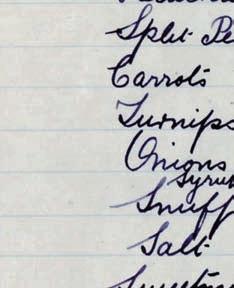 Split Pe
Carrots
Turnips
Onions
Syrup
Snuff
Salt